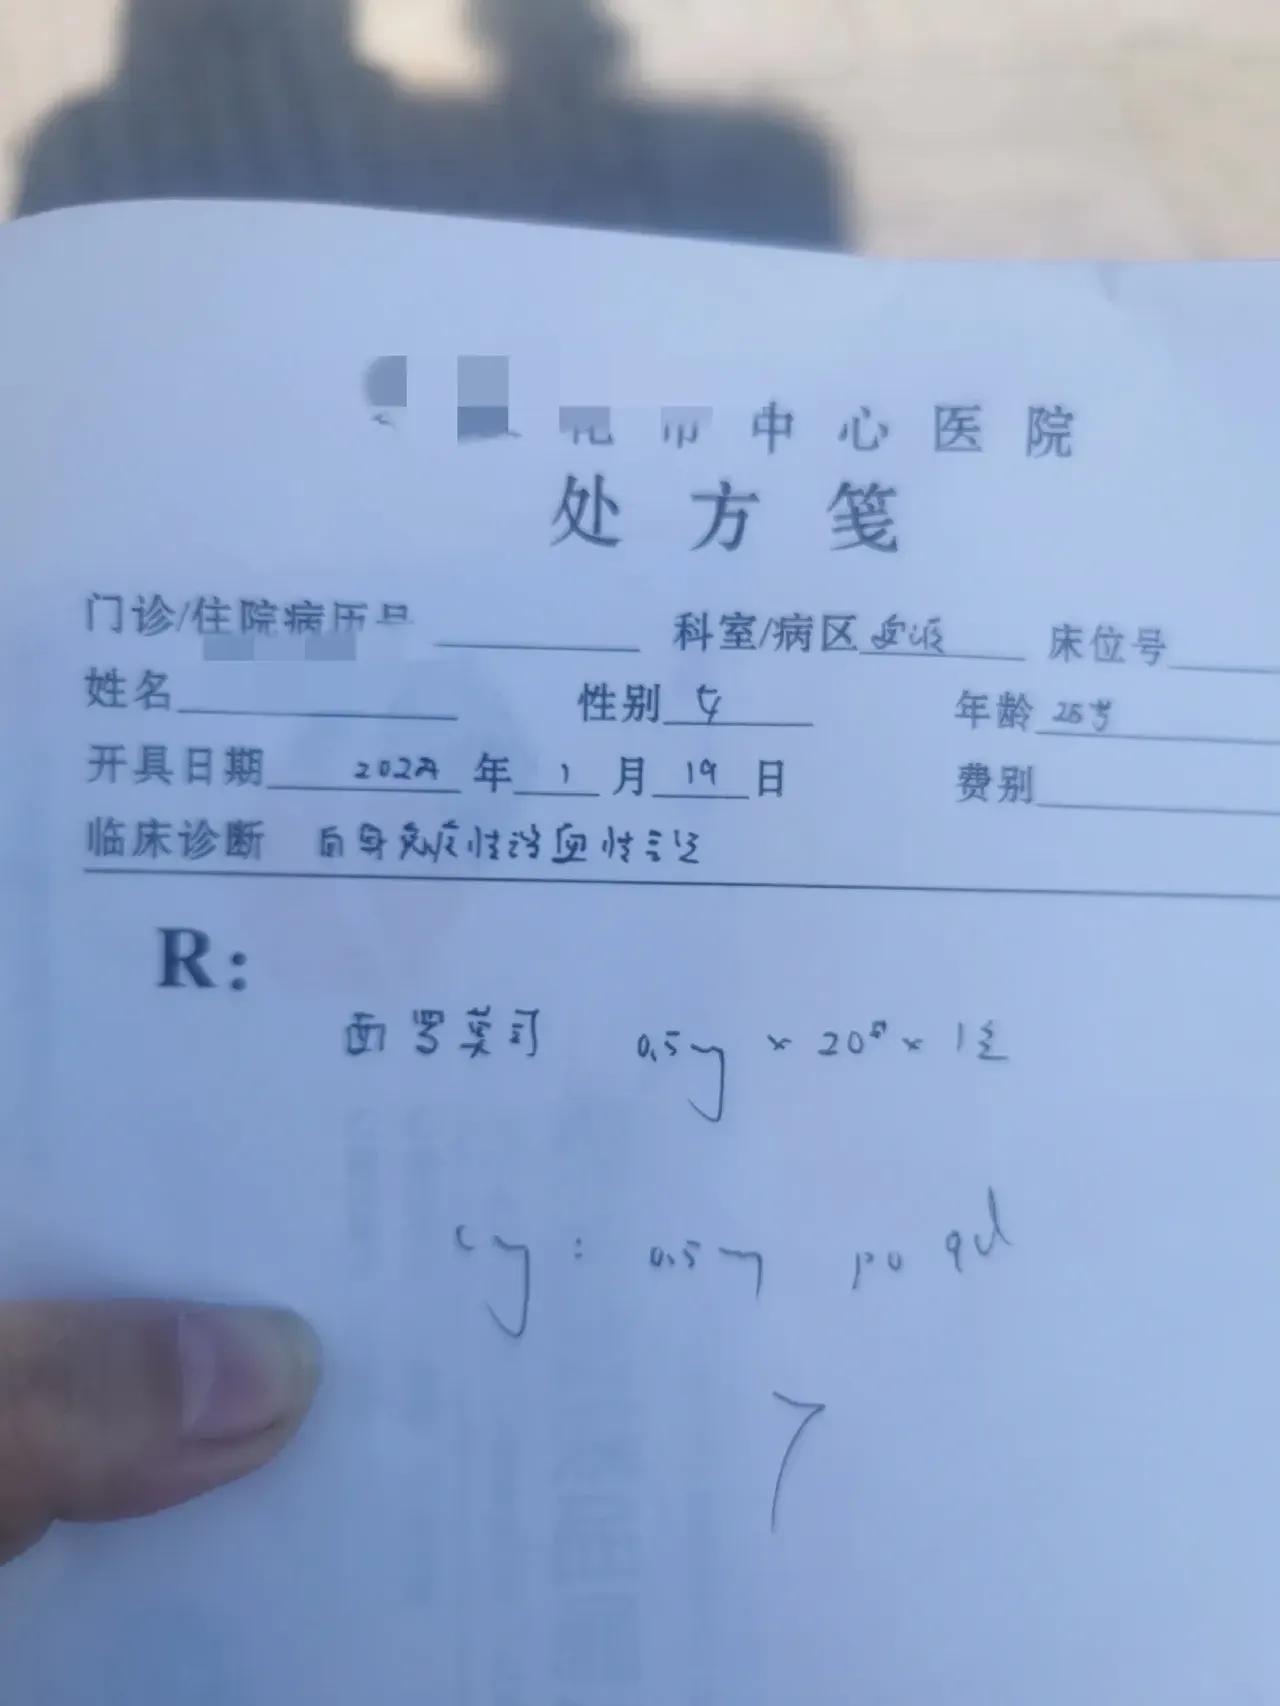 市中心医院
处方笺
门诊/住院病历号 科室/病区 血液 床位号
姓名 性别 女 年龄
开具日期 年 1 月 19 日 费别
临床诊断 自身免疫性溶血性
R:
西罗莫司 0.5mg × 20片 × 1盒
: 0.5mg po qd